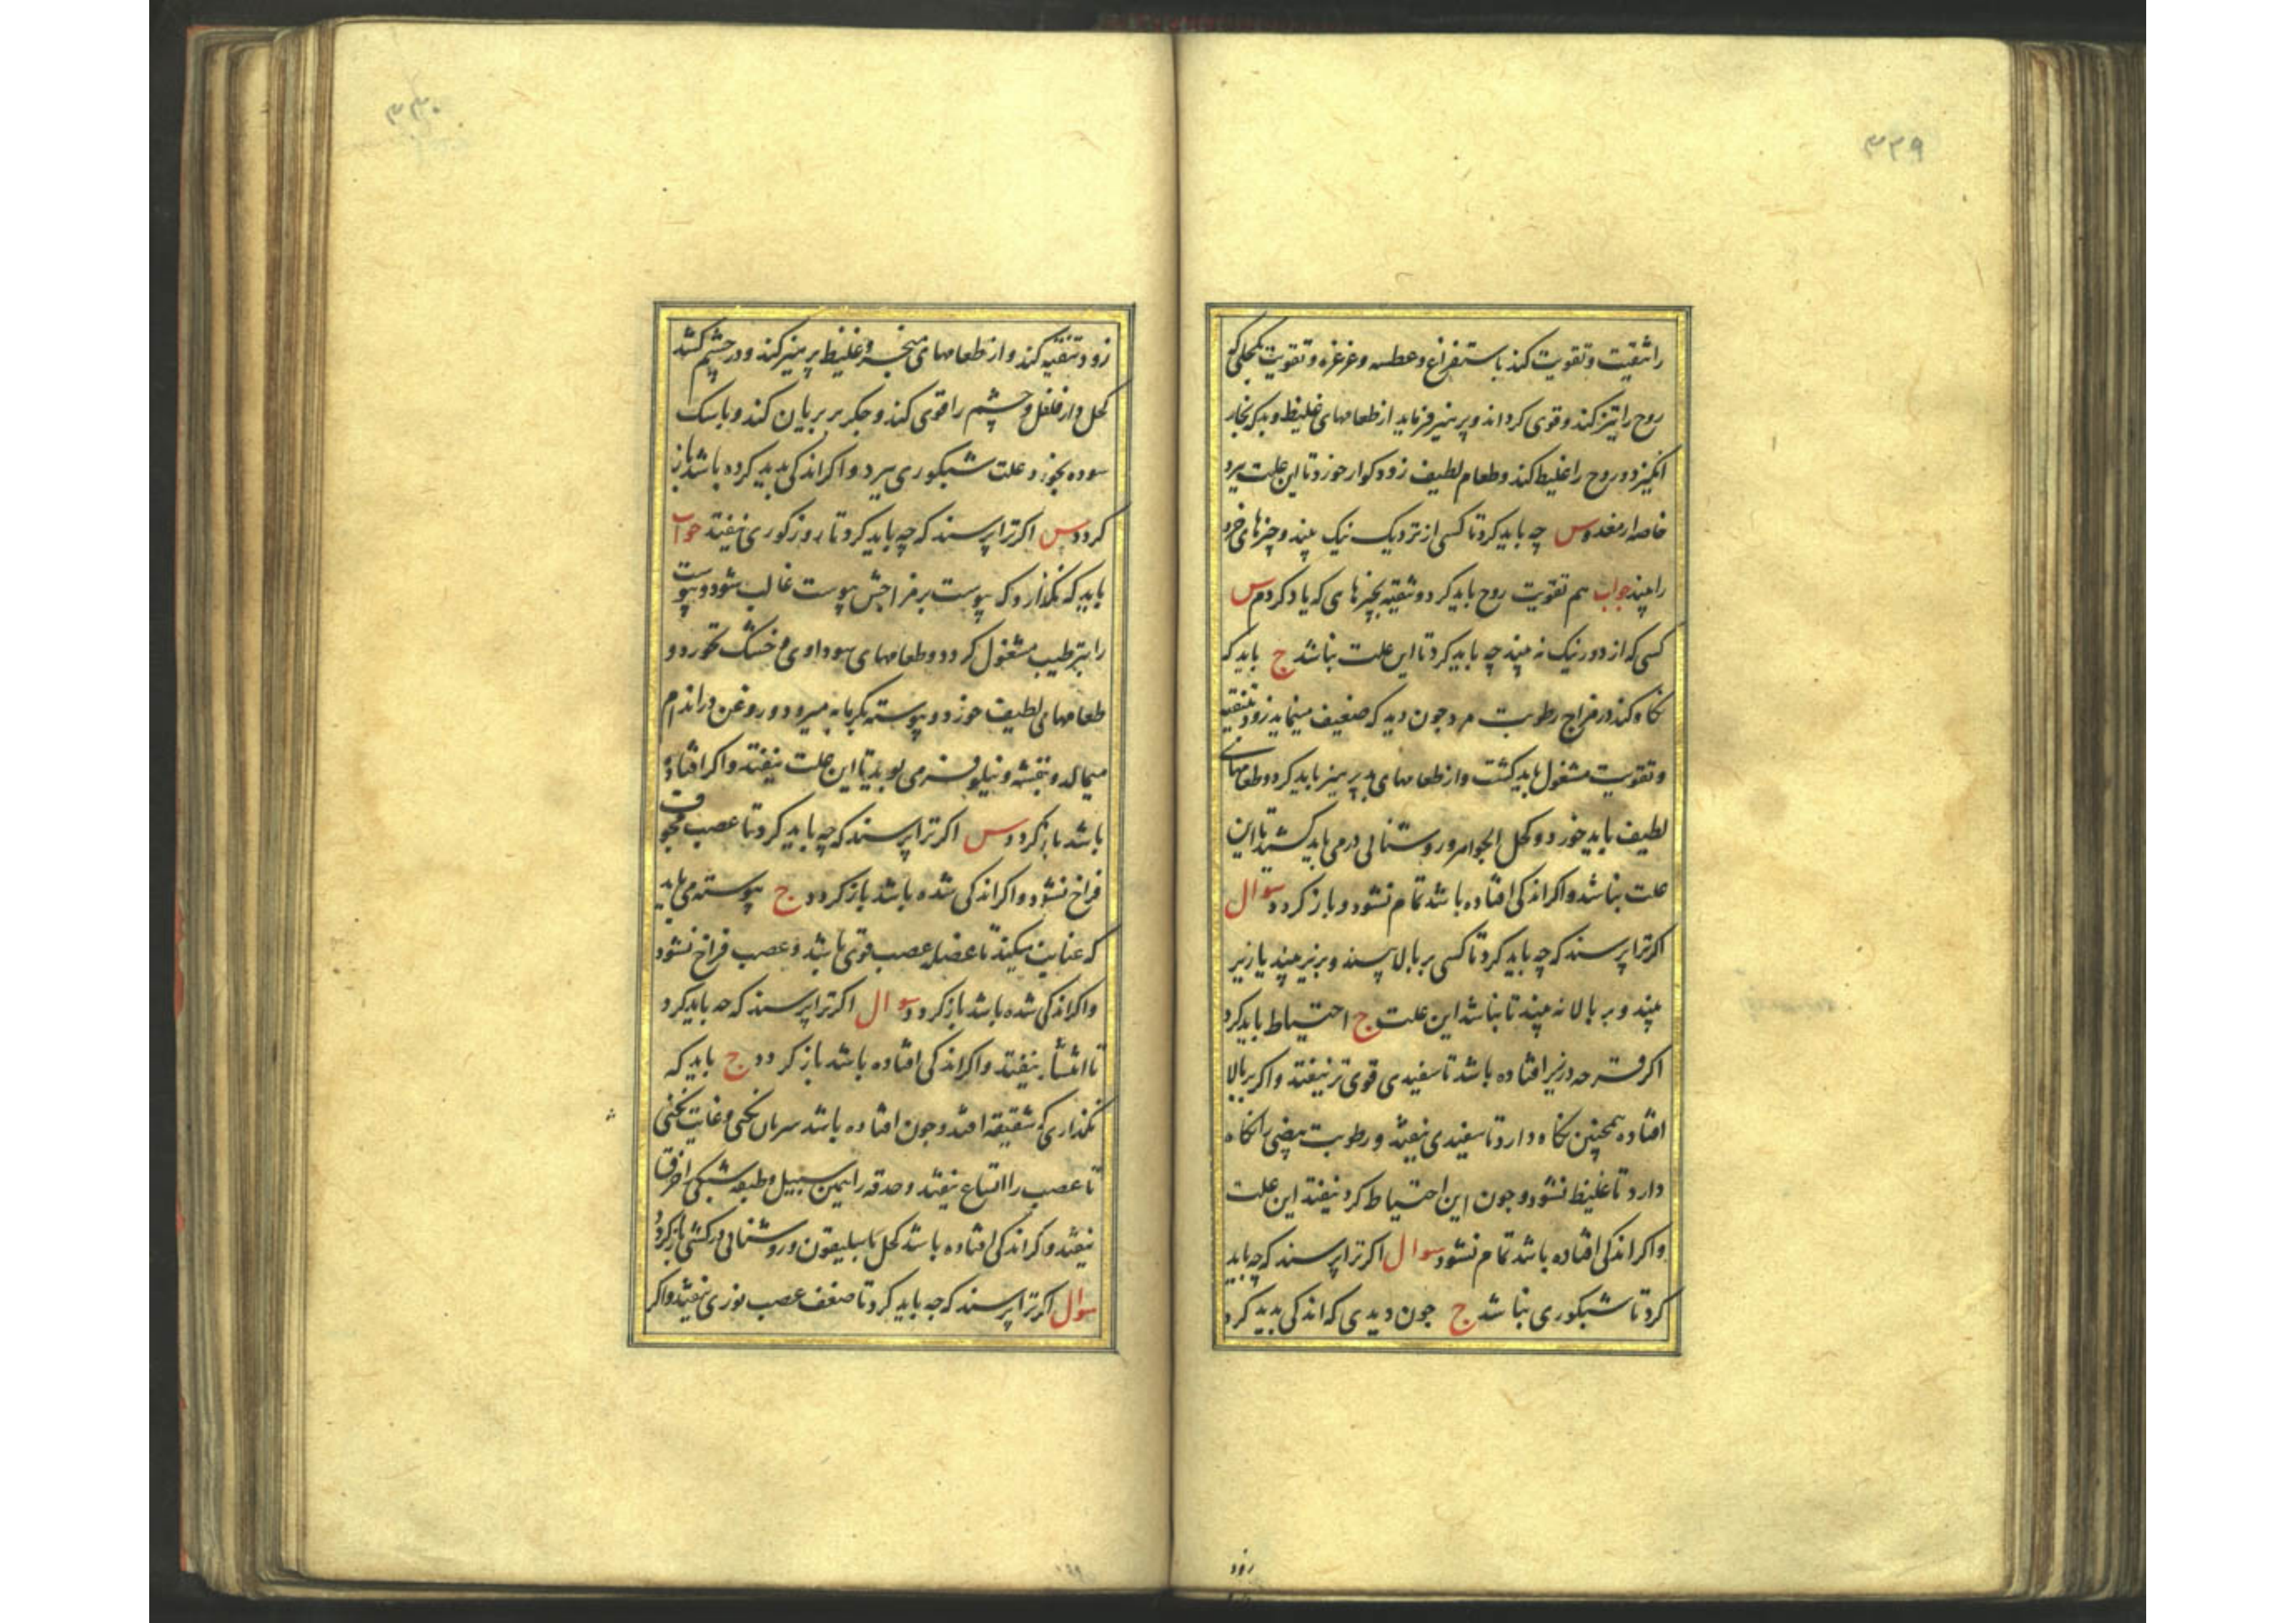 ۳۳۹
را تنقیت و تقویت کند باستفراغ و عطسه و غرغره و تقویت بکحلی که
روح را تیز کند و قوی کرداند و پرهیز فرماید از طعامهای غلیظ و بد که بخار
انکیزد و روح را غلیظ کند و طعام لطیف زود کوار خورد تا این علت ببرد
خاصه از معده س چه باید کرد تا کسی از نزدیک نیک بیند و چیزهای خرد
را بیند جواب هم تقویت روح باید کرد و تنقیه بچیزهای که یاد کردم س
کسی که از دور نیک نه بیند چه باید کرد تا این علت نباشد ج باید که
نکاه کند در مزاج رطوبت مرد چون دید که ضعیف مینماید زود تنقیه
و تقویت مشغول باید کشت و از طعامهای بد پرهیز باید کرد و طعامهای
لطیف باید خورد و کحل الجواهر و روشنائی درمی باید کشید تا این
علت نباشد و اکر اندکی افتاده باشد تمام نشود و باز کردد سوال
اکر ترا پرسند که چه باید کرد تا کسی بر بالا بیند و بزیر بیند یا زیر
بیند و بر بالا نه بیند تا نباشد این علت ج احتیاط باید کرد
اکر قرحه در زیر افتاده باشد تا سفیدی قوی تر نیفتد و اکر بر بالا
افتاده همچنین نکاه دارد تا سفیدی نیفتد و رطوبت بیضی را نکاه
دارد تا غلیظ نشود و چون این احتیاط کرد نیفتد این علت
و اکر اندکی افتاده باشد تمام نشود سوال اکر ترا پرسند که چه باید
کرد تا شبکوری نباشد ج چون دیدی که اندکی بدید کرد
زود
۳۳۰
زود تنقیه کند و از طعامهای مبخر و غلیظ پرهیز کند و در چشم کشد
کحل دارفلفل و چشم را قوی کند و جکر بز بریان کند و با نمک
سوده بخورد علت شبکوری ببرد و اکر اندکی بدید کرده باشد باز
کردد س اکر ترا پرسند که چه باید کرد تا روزکوری نیفتد جواب
باید که نکذارد که یبوست بر مزاجش یبوست غالب شود و یبوست
را بترطیب مشغول کردد و طعامهای سوداوی و خشک نخورد و
طعامهای لطیف خورد و پیوسته بکرمابه میرود و روغن در اندام
میمالد و بنفشه و نیلوفر می بوید تا این علت نیفتد و اکر افتاده
باشد باز کردد س اکر ترا پرسند که چه باید کرد تا عصب مجوف
فراخ نشود و اکر اندکی شده باشد باز کردد ج پیوسته می باید
که عنایت میکند تا عضله عصب قوی باشد و عصب فراخ نشود
و اکر اندکی شده باشد باز کردد سوال اکر ترا پرسند که چه باید کرد
تا انتشار نیفتد و اکر اندکی افتاده باشد باز کردد ج باید که
نکذاری که شقیقه افتد و چون افتاده باشد و غایت نکنی
تا عصب را اتساع نیفتد و حدقه را همین سبیل و طبقه شبکی
نیفتد و اکر اندکی افتاده باشد کحل باسلیقون و روشنائی درکشی باز کردد
سوال اکر ترا پرسند که چه باید کرد تا ضعف عصب نوری نیفتد و اکر